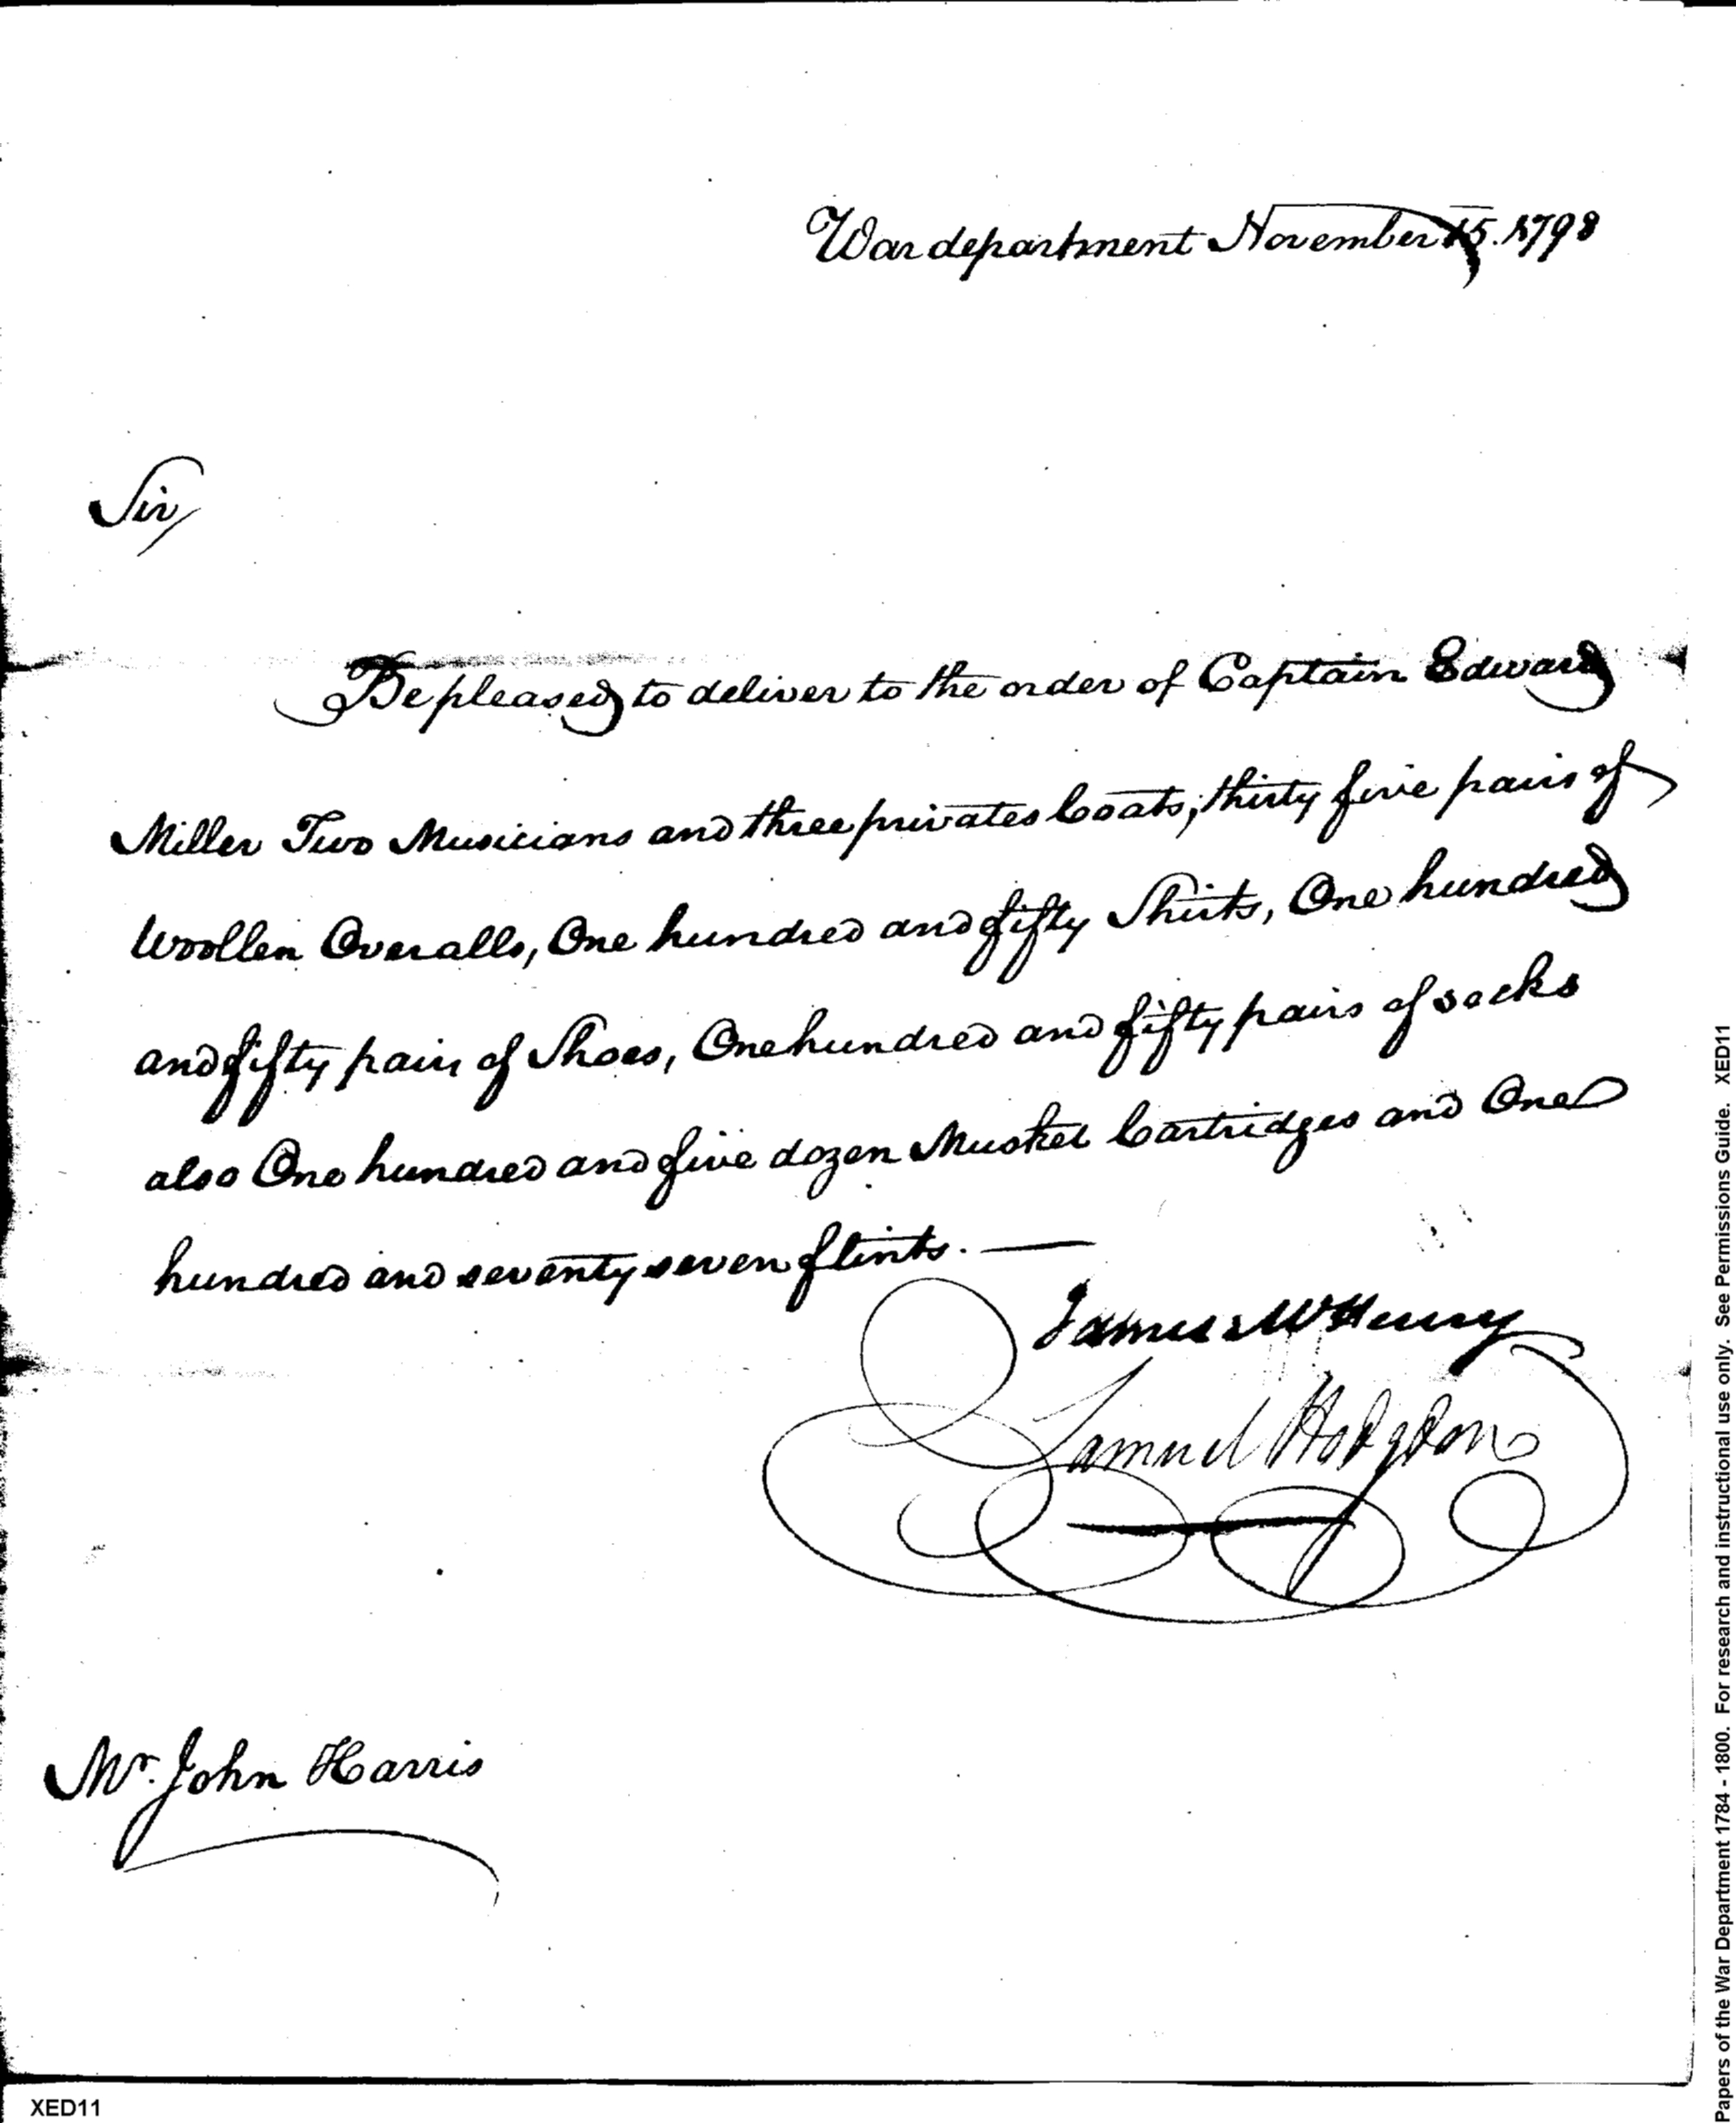 War department November 15. 1798
Sir,
Be pleased to deliver to the order of Captain Edward
Miller Two Musicians and three privates Coats, thirty five pairs of
Woollen Overalls, One hundred and fifty Shirts, One hundred
and fifty pairs of Shoes, One hundred and fifty pairs of socks
also One hundred and five dozen Musket Cartridges and One
hundred and seventy seven flints. —
James McHenry
Samuel Hodgdon
Mr. John Harris
XED11
Papers of the War Department 1784 - 1800. For research and instructional use only. See Permissions Guide. XED11